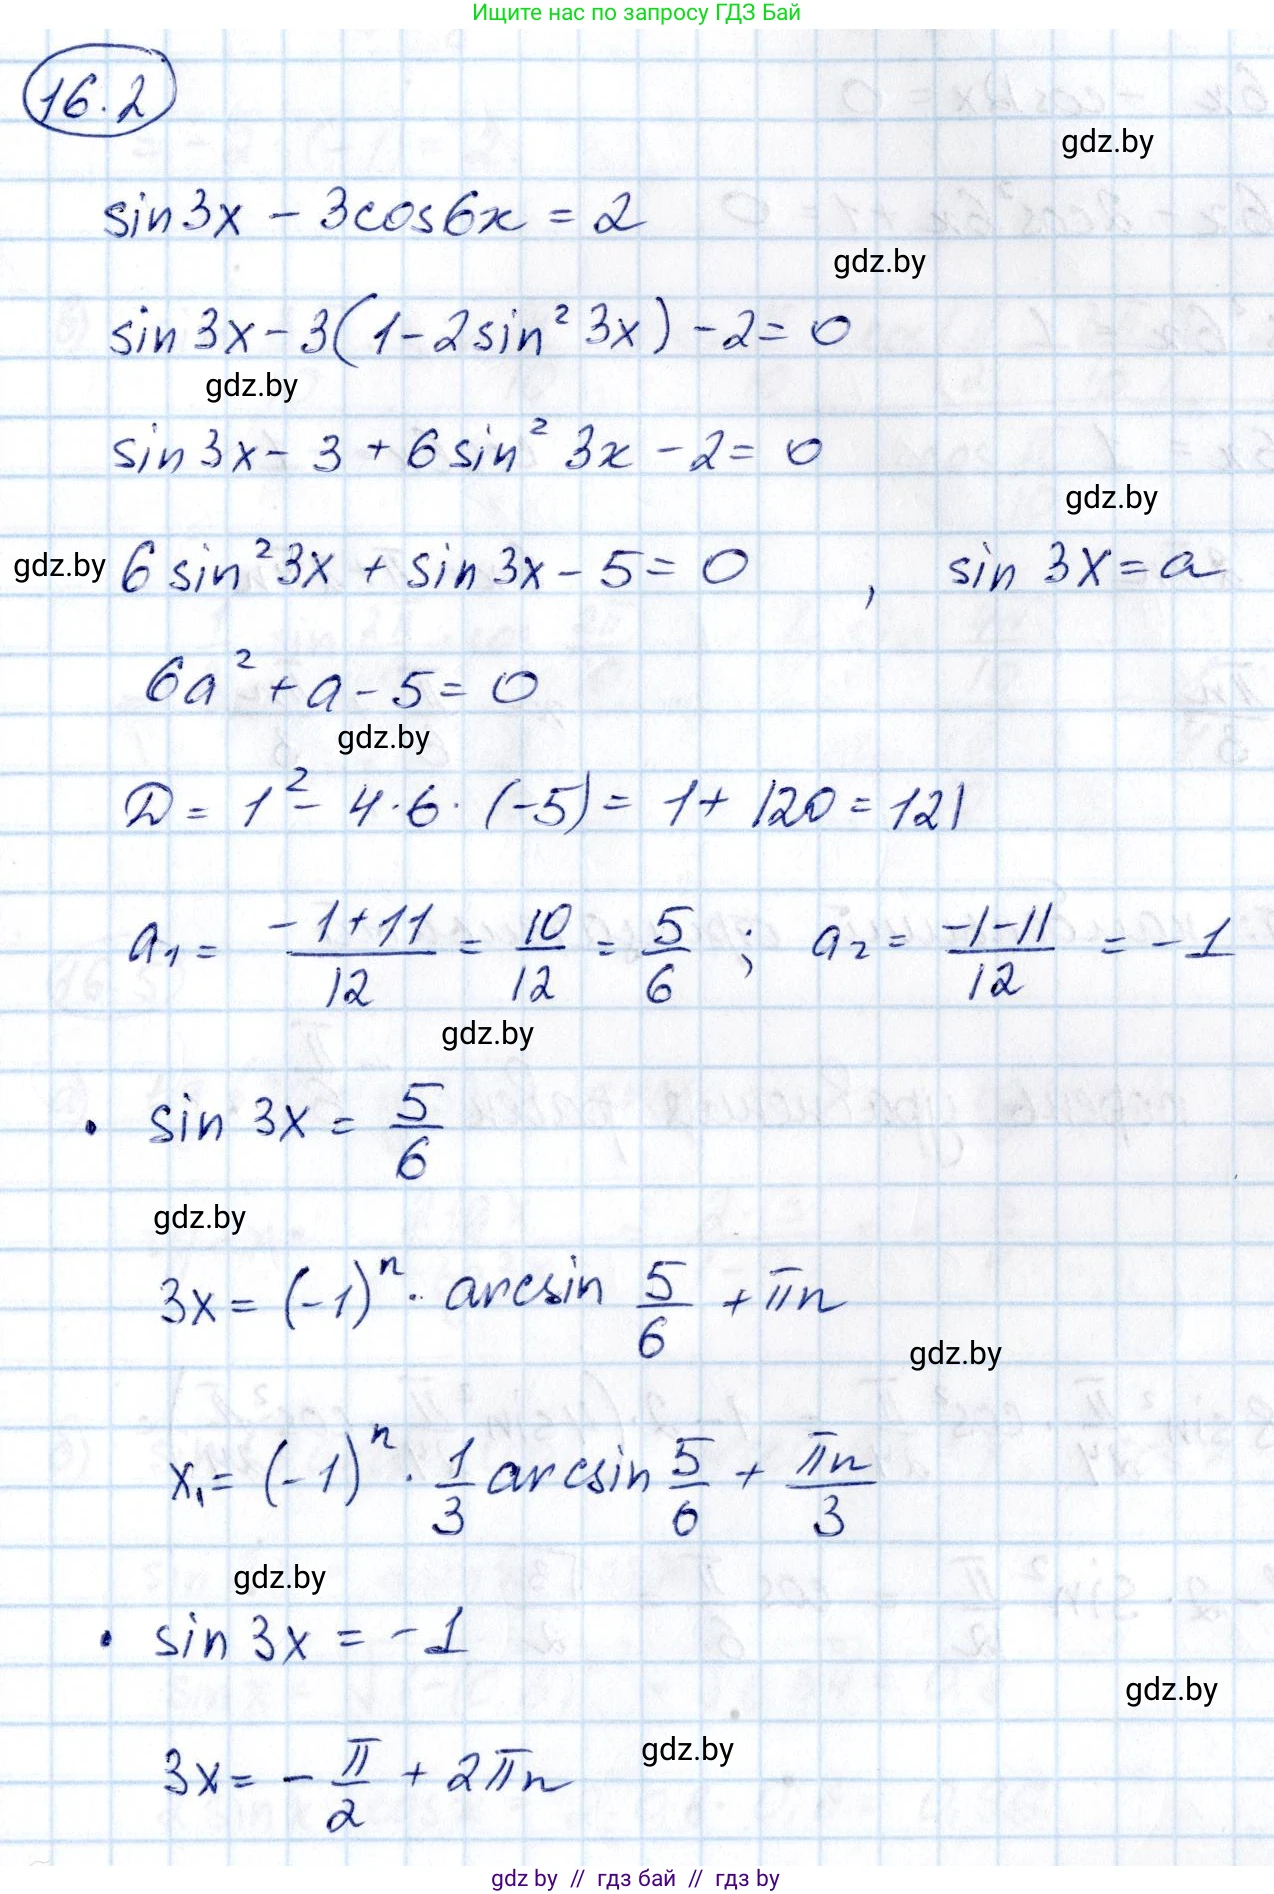 Ищите нас по запросу ГДЗ Бай
16.2
gdz.by
sin3x - 3cos6x = 2
gdz.by
sin 3x - 3(1 - 2sin² 3x) - 2 = 0
gdz.by
sin 3x - 3 + 6 sin² 3x - 2 = 0
gdz.by
gdz.by 6 sin² 3x + sin 3x - 5 = 0 , sin 3x = a
6a² + a - 5 = 0
gdz.by
D = 1² - 4 · 6 · (-5) = 1 + 120 = 121
a₁ = (-1+11)/12 = 10/12 = 5/6 ; a₂ = (-1-11)/12 = -1
gdz.by
• sin 3x = 5/6
gdz.by
3x = (-1)ⁿ · arcsin 5/6 + πn
gdz.by
x₁ = (-1)ⁿ · 1/3 arcsin 5/6 + πn/3
gdz.by
• sin 3x = -1
gdz.by
3x = - π/2 + 2πn
gdz.by
gdz by // гдз бай // гдз by